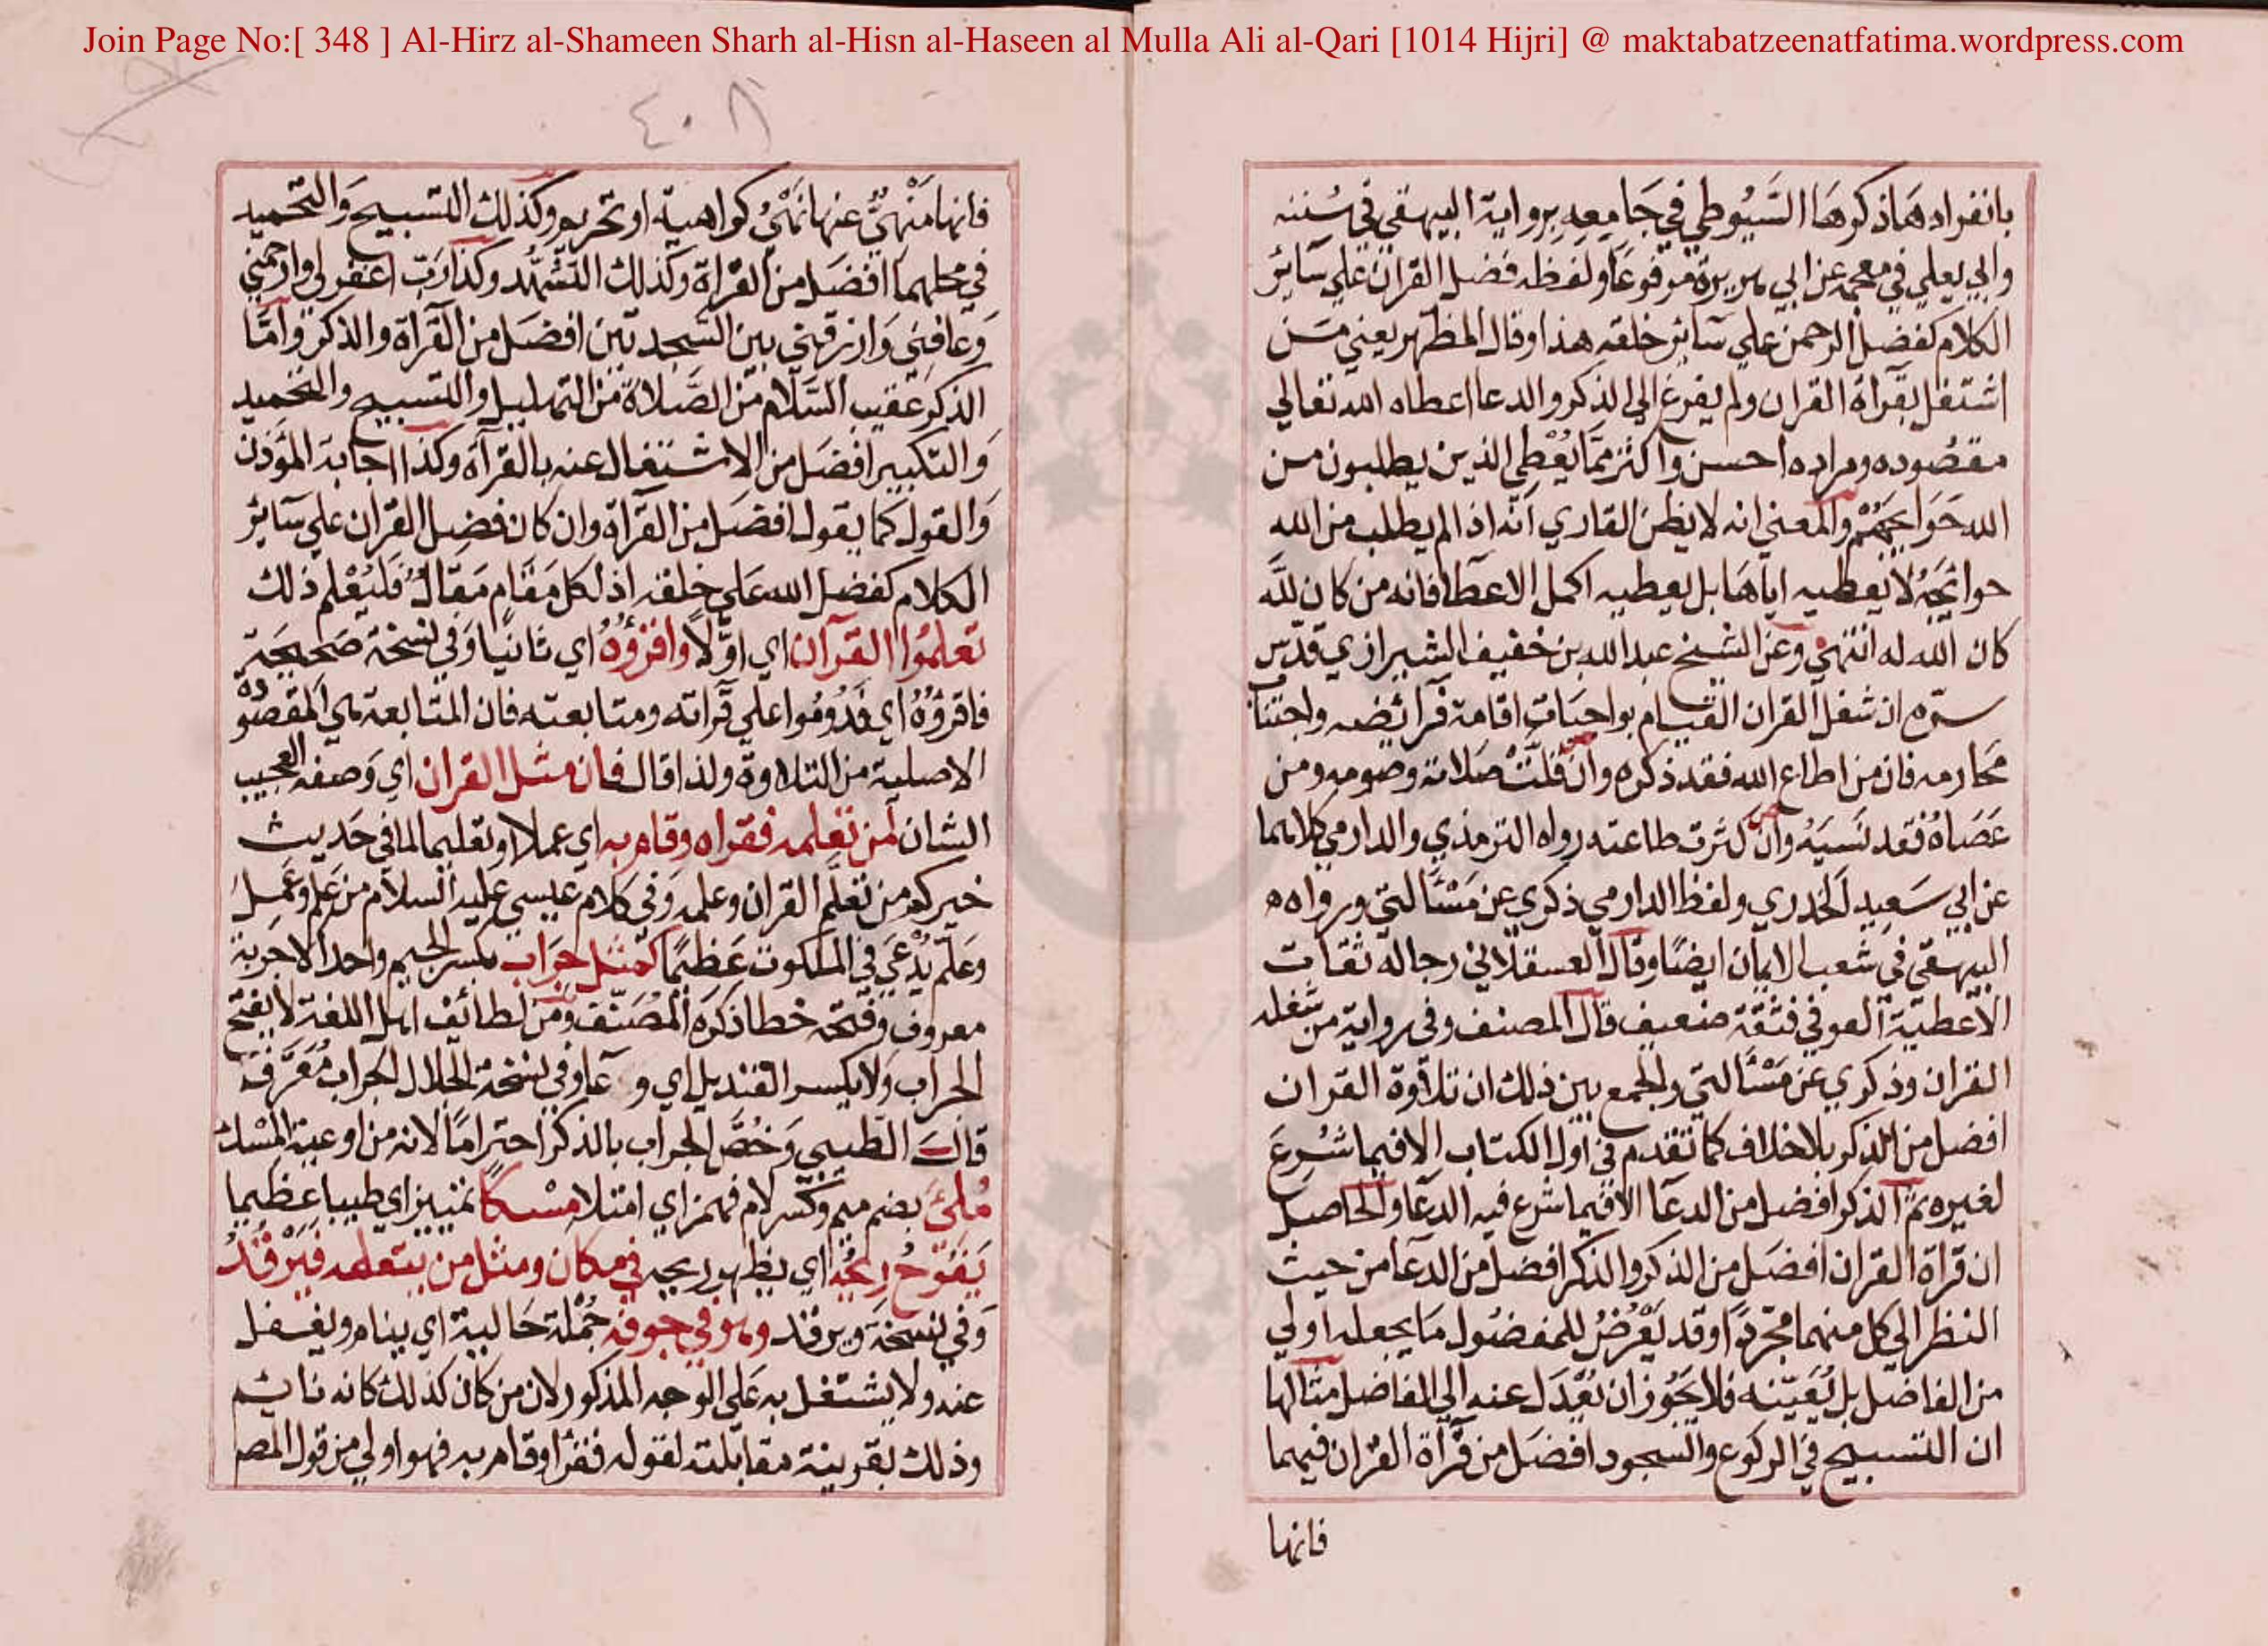 Join Page No:[ 348 ] Al-Hirz al-Shameen Sharh al-Hisn al-Haseen al Mulla Ali al-Qari [1014 Hijri] @ maktabatzeenatfatima.wordpress.com
بانفرادهما ذكرها السيوطي في جامعه برواية البيهقي في سننه
وابي يعلي في معجمه عن ابي هريرة مرفوعا ولفظه فضل القران علي سائر
الكلام كفضل الرحمن علي سائر خلقه هذا وقال المظهر يعني من
اشتغل بقرآة القران ولم يفرغ الي الذكر والدعا اعطاه الله تعالي
مقصوده ومراده احسن واكثر مما يعطي الذين يطلبون من
الله حوائجهم والمعني انه لا يظن القاري انه اذا لم يطلب من الله
حوائجه لا يعطيه اياها بل يعطيه اكمل الاعطا فانه من كان لله
كان الله له انتهي وعن الشيخ عبد الله بن خفيف الشيرازي قدس
سره ان شغل القران القيام بواجبات اقامة فرائضه واجتناب
محارمه فان من اطاع الله فقد ذكره وان قلت صلاته وصومه ومن
عصاه فقد نسيه وان كثرت طاعته رواه الترمذي والدارمي كلاهما
عن ابي سعيد الخدري ولفظ الدارمي ذكري عن مسألتي ورواه
البيهقي في شعب الايمان ايضا وقال العسقلاني رجاله ثقات
الا عطية العوفي ففيه ضعيف قال المصنف وفي رواية من شغله
القران وذكري عن مسألتي والجمع بين ذلك ان تلاوة القران
افضل من الذكر بلا خلاف كما تقدم في اول الكتاب الا فيما شرع
لغيره ثم الذكر افضل من الدعا الا فيما شرع فيه الدعا والحاصل
ان قراة القران افضل من الذكر والذكر افضل من الدعا من حيث
النظر الي كل منهما مجردا وقد يعرض للمفضول ما يجعله اولي
من الفاضل بل يعينه فلا يجوز ان يعدل عنه الي الفاضل مثالها
ان التسبيح في الركوع والسجود افضل من قرآة القران فيهما
فانها
٤٠٨
فانها منهي عنها نهي كراهية او تحريم وكذلك التسبيح والتحميد
في محلهما افضل من القراة وكذلك التشهد وكذا رب اغفر لي وارحمني
وعافني وارزقني بين السجدتين افضل من القرآة والذكر واما
الذكر عقيب السلام من الصلاة من التهليل والتسبيح والتحميد
والتكبير افضل من الاشتغال عنه بالقرآة وكذا اجابة المؤذن
والقول كما يقول افضل من القرآة وان كان فضل القران علي سائر
الكلام كفضل الله علي خلقه اذ لكل مقام مقال فليعلم ذلك
تعلموا القرآن اي اولا واقرؤه اي ثانيا وفي نسخة صحيحة
فاقرؤه اي فدوموا علي قرآته ومتابعته فان المتابعة هي المقصودة
الاصلية من التلاوة ولذا قال فان مثل القران اي وصفه العجيب
الشان لمن تعلمه فقراه وقام به اي عملا وتعليما لما في حديث
خيركم من تعلم القران وعلمه وفي كلام عيسي عليه السلام من علم وعمل
وعلم يدعي في الملكوت عظيما كمثل جراب بكسر الجيم واحد الاجربة
معروف وفتحه خطا ذكره المصنف ومن لطائف اهل اللغة لا يفتح
الجراب ولا يكسر القنديل اي وعآ وفي نسخة الجلال الجراب معرف
قال الطيبي وخص الجراب بالذكر احتراما لانه من اوعية المسك
ملئ بضم ميم وكسر لام فهمز اي امتلا مسكا تمييز اي طيبا عظيما
يفوح ريحه اي يظهر ريحه في مكان ومثل من يتعلمه فيرقد
وفي نسخة ويرقد وهو في جوفه جملة حالية اي ينام ويغفل
عنه ولا يشتغل به علي الوجه المذكور لان من كان كذلك كانه نائم
وذلك بقرينة مقابلته لقوله فقرا وقام به فهو اولي من قول المصـ